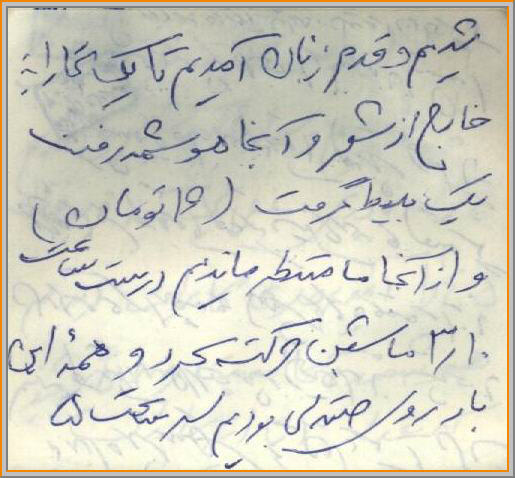 شدیم و قدم زنان آمدیم تا یک
خارج از شهر و آنجا هوشمند رفت
یک بلیط گرفت (۱۶ تومان)
و از آنجا ما منتظر ماندیم درست ساعت
۳/۱۰ ماشین حرکت کرد و همهٔ این
بار روی صندلی بودیم